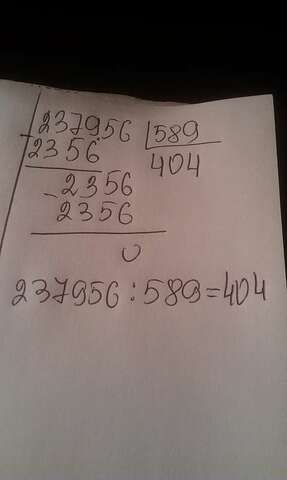 237956 589
2356 404
- 2356
2356
0
237956 : 589 = 404